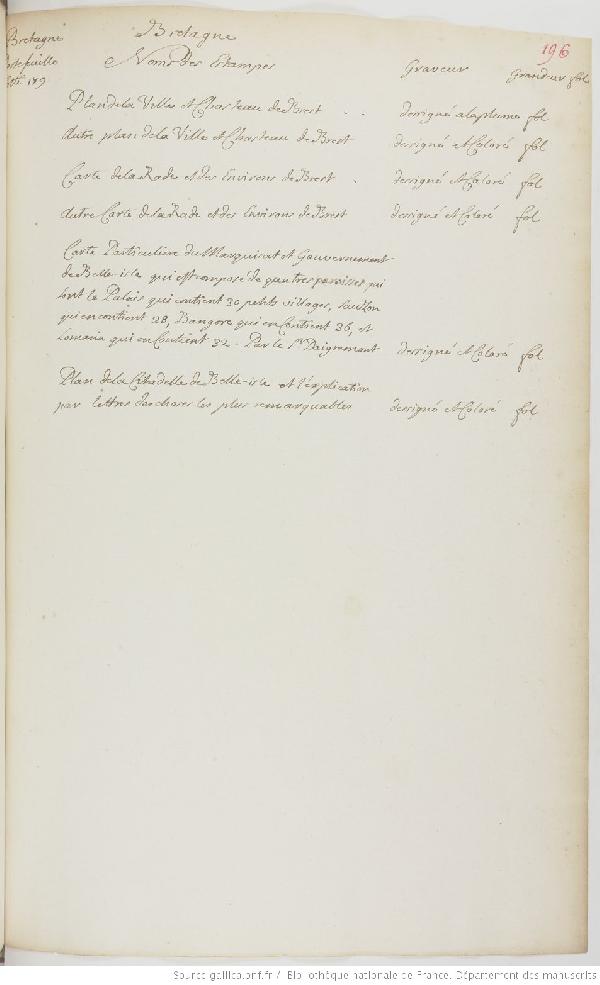 Bretagne
Bretagne
portefeuille
196
Noms Des Estampes
Graveur
Grandeur fol
Plan de la Ville et Chasteau de Brest . . dessigné a la plume fol
Autre plan de la Ville et Chasteau de Brest dessigné et Coloré fol
Carte de la Rade et des Environs de Brest . dessigné et Coloré fol
Autre Carte de la Rade et des Environs de Brest dessigné et Coloré fol
Carte Particuliere du Marquisat et Gouvernement
de Belle-isle qui est composé de quatres paroisses qui
sont le Palais qui contient 30 petits villages, Sauzon
qui en contient 28, Bangore qui en Contient 36, et
Lomaria qui en Contient 32. Par le Sr. Daigremont dessigné et Coloré fol
Plan de la Citadelle de Belle-isle et l'explication
par lettres des choses les plus remarquables dessigné et Coloré fol
Source gallica.bnf.fr / Bibliothèque nationale de France. Département des manuscrits